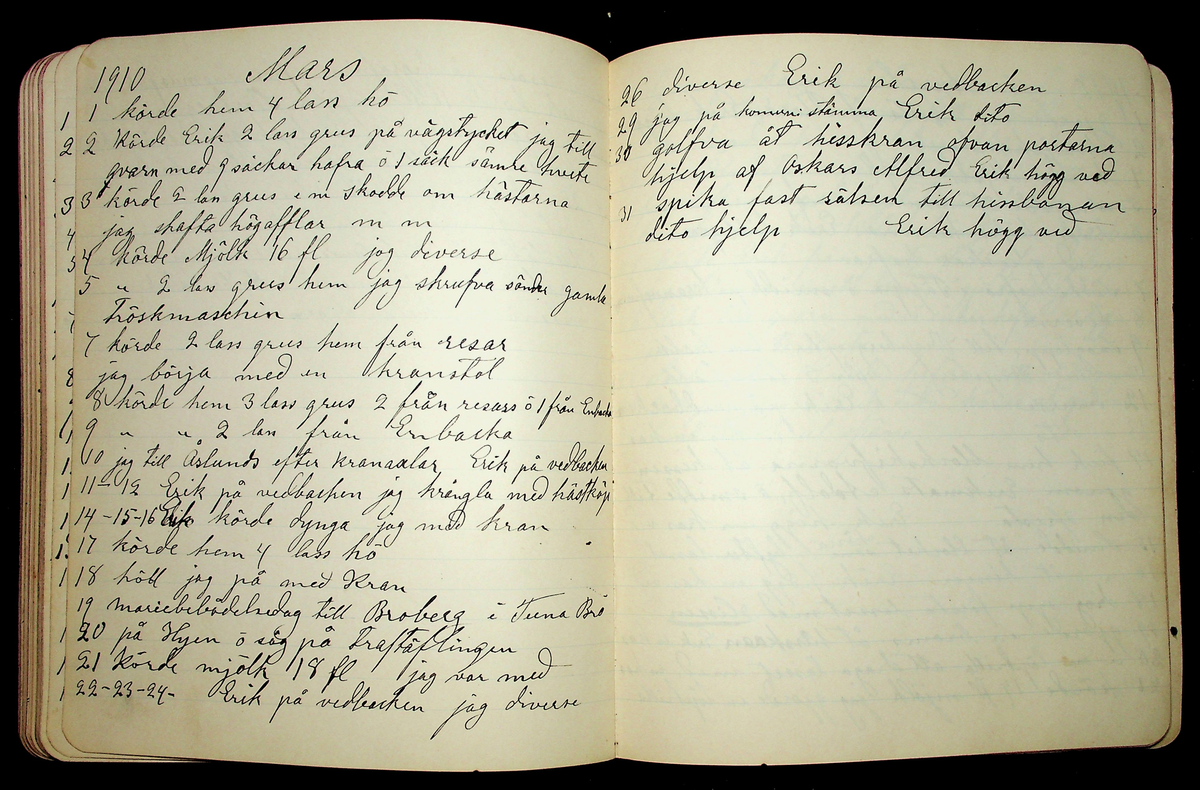 1910 Mars
1 körde hem 4 lass hö
2 Körde Erik 2 lass grus på vägstycket jag till
qvarn med 9 säckar hafra ö 1 säck sämre hvete
3 körde 2 lass grus e m skodde om hästarna
jag skafta högafflar m m
4 körde Mjölk 16 fl jag diverse
5 " 2 lass grus hem jag skrufva sönder gamla
Tröskmaschin
7 körde 2 lass grus hem från resar
jag börja med en kranstol
8 körde hem 3 lass grus 2 från resars ö 1 från Enbacka
9 " " 2 lass från Enbacka
10 jag till Åslunds efter kranaxlar Erik på vedbacken
11-12 Erik på vedbacken jag krångla med hästköp
14-15-16 Erik körde dynga jag med kran
17 körde hem 4 lass hö
18 höll jag på med Kran
19 mariebebådelsedag till Broberg i Tuna Bro
20 på Hyen ö såg på Traftäflingen
21 Körde mjölk 18 fl jag var med
22-23-24- Erik på vedbacken jag diverse
26 diverse Erik på vedbacken
29 jag på komun: stämma Erik dito
30 golfva åt hisskran ofvan portarna
hjelp af Oskars Alfred Erik högg ved
31 spika fast sätsen till hissbanan
dito hjelp Erik högg ved